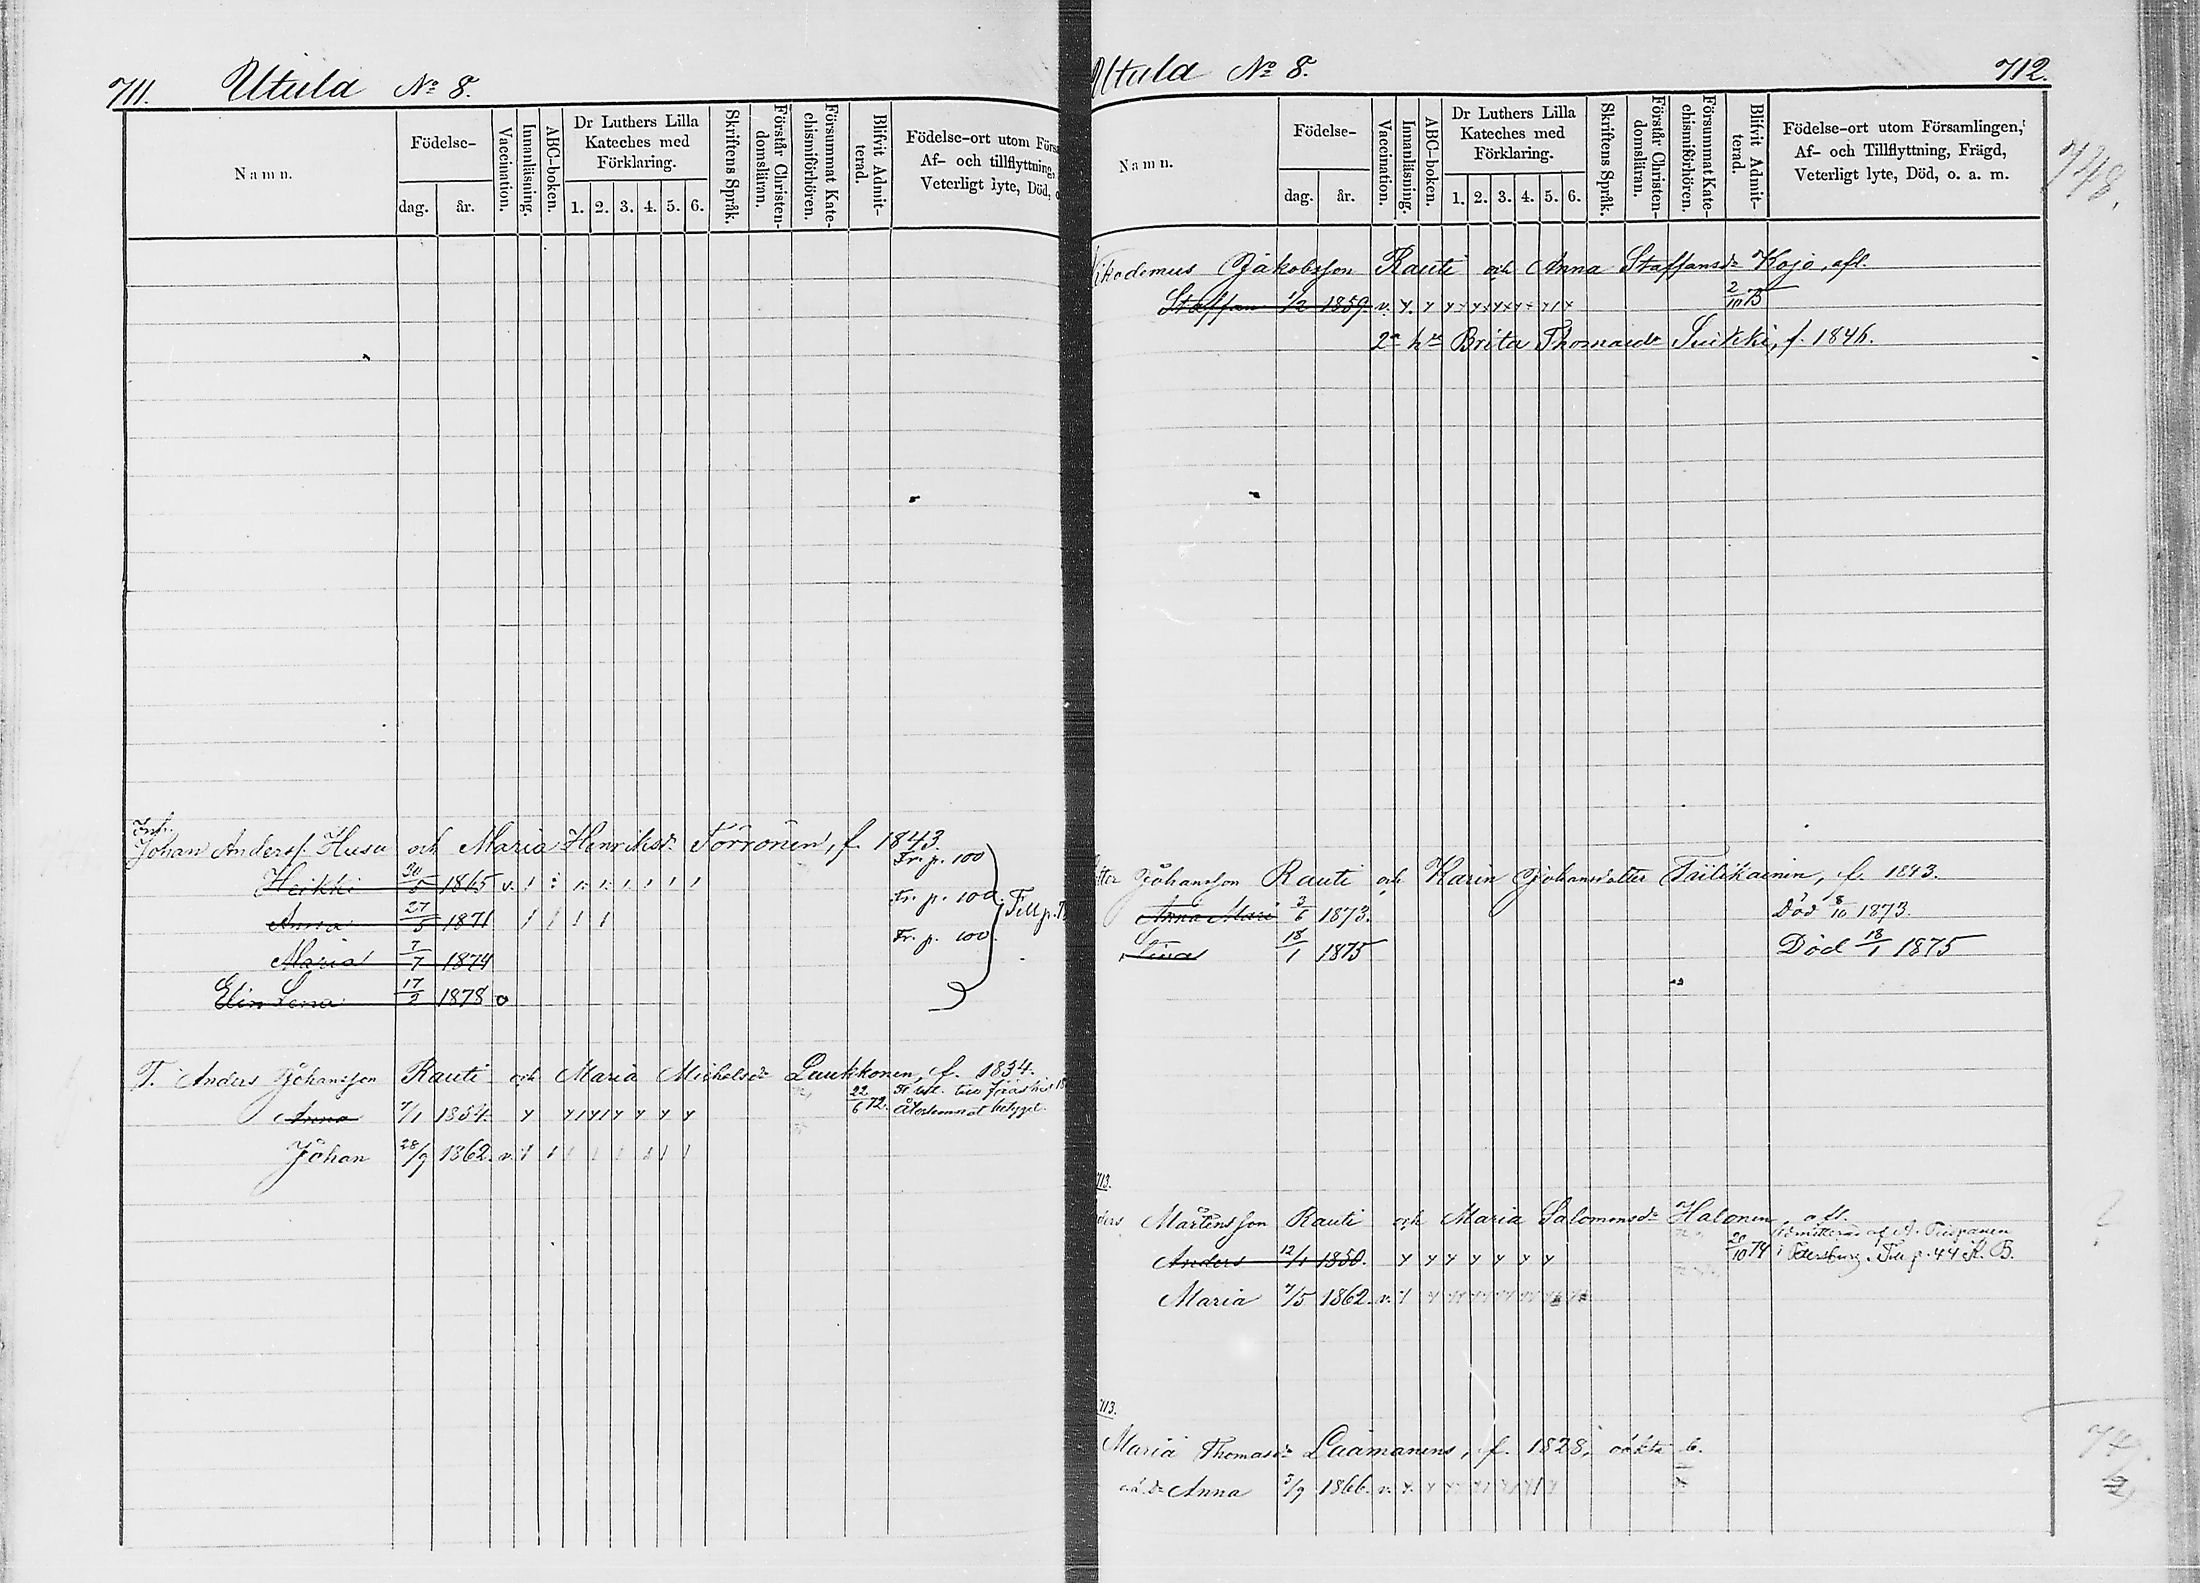 711. Utula No 8.
Namn.
Födelse-
dag. år.
Vaccination.
Innanläsning.
ABC-boken.
Dr Luthers Lilla
Kateches med
Förklaring.
1. 2. 3. 4. 5. 6.
Skriftens Språk.
Förstår Christen-
domsläran.
Försummat Kate-
chismiförhören.
Blifvit Admit-
terad.
Födelse-ort utom Förs
Af- och tillflyttning,
Veterligt lyte, Död,
Inh.
Johan Anderss. Husu och Maria Henriksdr Törrönen, f. 1843.
Heikki 30/5 1865 v. Fr. p. 100
Anna 27/5 1871 Fr. p. 100. Till p.
Maria 7/7 1874 Fr. p. 100.
Elin Lena 17/2 1878 o
T. Anders Johansson Rauti och Maria Michelsdr Luukkonen, f. 1834.
Anna 7/1 1854. 22/6 72. Återlemnat betyget.
Johan 28/9 1862. v.
Utula No 8. 712.
Namn.
Födelse-
dag. år.
Vaccination.
Innanläsning.
ABC-boken.
Dr Luthers Lilla
Kateches med
Förklaring.
1. 2. 3. 4. 5. 6.
Skriftens Språk.
Förstår Christen-
domsläran.
Försummat Kate-
chismiförhören.
Blifvit Admit-
terad.
Födelse-ort utom Församlingen,
Af- och Tillflyttning, Frägd,
Veterligt lyte, Död, o. a. m.
748.
ikodemus Jakobsson Rauti och Anna Staffansdr Kojo, afl.
Staffan 1/2 1859. v. 2/10 75
2a h. Brita Thomasdr Suikki, f. 1846.
tter Johansson Rauti och Karin Johansdotter f. 1843.
Anna Mari 3/6 1873. Död 8/10 1873.
Stina 18/1 1875 Död 18/1 1875
713.
ders Mårtensson Rauti och Maria Salomonsdr Halonen, afl.
Anders 12/1 1850. 20/10 74 i Petersburg. Till p. 44 K. B.
Maria 7/5 1862. v.
713.
Maria Thomasdr Laamanens, f. 1828, oäkta b.
Anna 3/9 1866. v.
749.